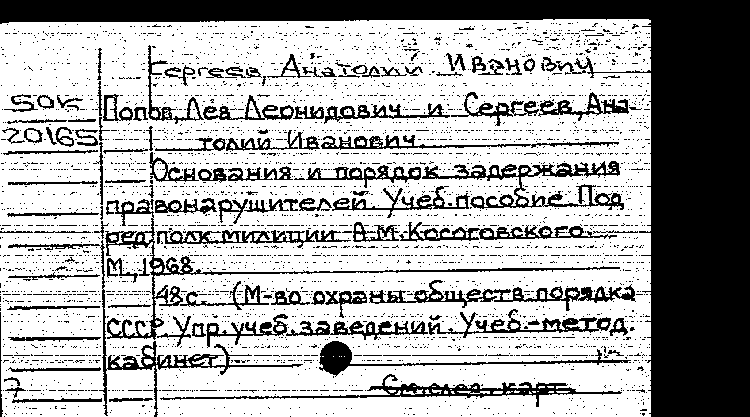 Сергеев, Анатолий Иванович
50к
20165
Попов, Лев Леонидович и Сергеев, Ана-
толий Иванович.
Основания и порядок задержания
правонарушителей. Учеб. пособие. Под
ред. полк. милиции А.М. Косоговского.
М., 1968.
48с. (М-во охраны обществ. порядка
СССР. Упр. учеб. заведений. Учеб.-метод.
кабинет)
См. след. карт.
7